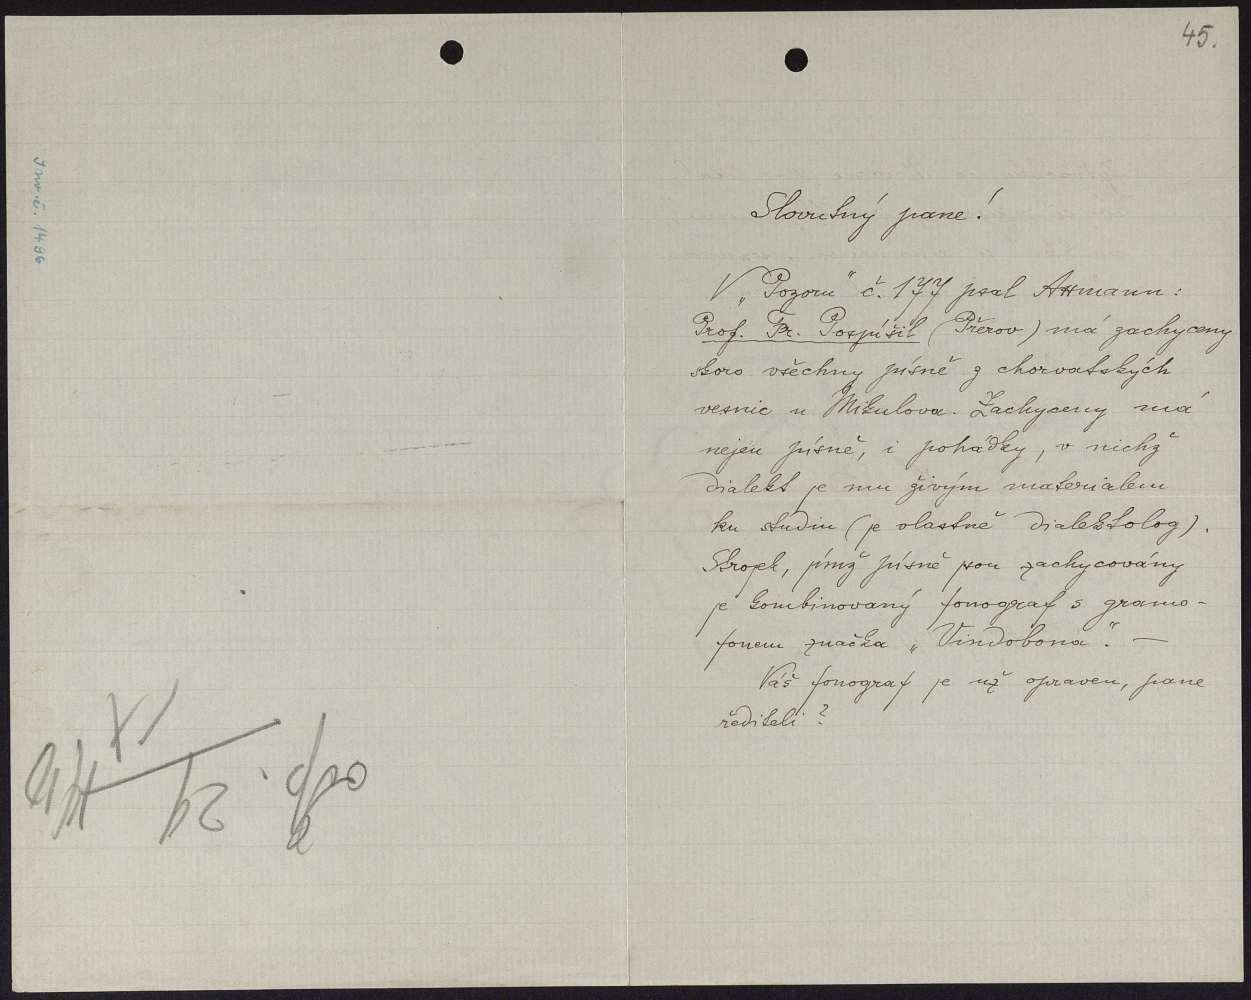 45.
Inv. č. 1486
Slovutný pane!
V „Pozoru“ č. 177 psal Attmann:
Prof. Fr. Pospíšil (Přerov) má zachyceny
skoro všechny písně z chorvatských
vesnic u Mikulova. Zachyceny má
nejen písně, i pohádky, v nichž
dialekt je mu živým materialem
ku studiu (je vlastně dialektolog).
Stroj, jímž písně jsou zachycovány
je kombinovaný fonograf s gramo-
fonem značka „Vindobona“. —
Váš fonograf je už opraven, pane
řediteli?
odp.